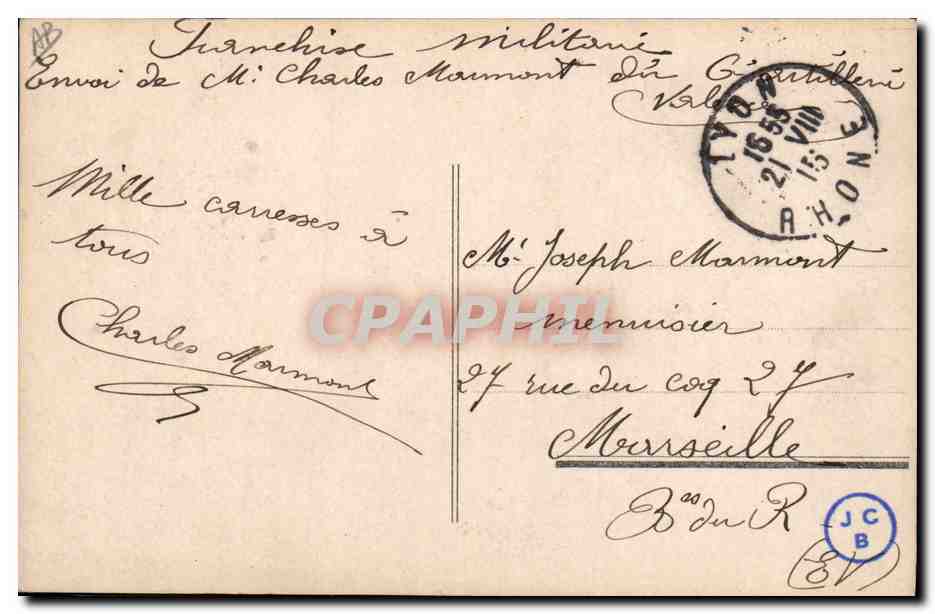 AB
Franchise militaire
Envoi de Mr. Charles Marmont du 6e artillerie
LYON
15 55
21 VIII
15
RHONE
Mille caresses à
tous
Charles Marmont
Mr. Joseph Marmont
menuisier
27 rue du coq 27
Marseille
Bes du R
(EV)
JC
B
CPAPHIL